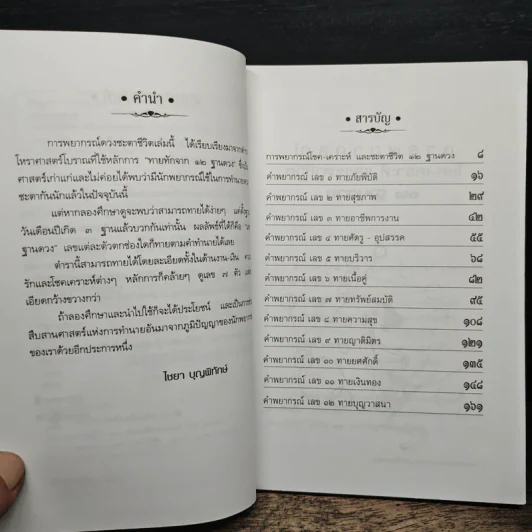 คำนำ
การพยากรณ์ดวงชะตาชีวิตเล่มนี้ ได้เรียบเรียงมาจาก
โหราศาสตร์โบราณที่ใช้หลักการ "ทายทักจาก ๑๒ ฐานดวง"
ศาสตร์เก่าแก่และไม่ค่อยได้พบว่ามีนักพยากรณ์ใช้ในการทำนาย
ชะตากันนักแล้วในปัจจุบันนี้
แต่หากลองศึกษาดูจะพบว่าสามารถทายได้ง่ายๆ
วันเดือนปีเกิด ๓ ฐานแล้วบวกกันเท่านั้น ผลลัพธ์ที่ได้ก็คือ
ฐานดวง" เลขแต่ละตัวตกช่องใดก็ทายตามคำทำนายได้เลย
ตำรานี้สามารถทายได้โดยละเอียดทั้งในด้านงาน-เงิน
รักและโชคเคราะห์ต่างๆ หลักการก็คล้ายๆ ดูเลข ๗ ตัว
เอียดกว้างขวางกว่า
ถ้าลองศึกษาและนำไปใช้ก็จะได้ประโยชน์ และเป็นการ
สืบสานศาสตร์แห่งการทำนายอันมาจากภูมิปัญญาของนักพยากรณ์
ของเราด้วยอีกประการหนึ่ง
ไชยา บุญพิทักษ์
สารบัญ
การพยากรณ์โชค-เคราะห์ และชะตาชีวิต ๑๒ ฐานดวง ๘
คำพยากรณ์ เลข ๑ ทายภัยพิบัติ ๑๖
คำพยากรณ์ เลข ๒ ทายสุขภาพ ๒๙
คำพยากรณ์ เลข ๓ ทายอาชีพการงาน ๔๒
คำพยากรณ์ เลข ๔ ทายศัตรู - อุปสรรค ๕๕
คำพยากรณ์ เลข ๕ ทายบริวาร ๖๘
คำพยากรณ์ เลข ๖ ทายเนื้อคู่ ๘๒
คำพยากรณ์ เลข ๗ ทายทรัพย์สมบัติ ๙๕
คำพยากรณ์ เลข ๘ ทายความสุข ๑๐๘
คำพยากรณ์ เลข ๙ ทายญาติมิตร ๑๒๑
คำพยากรณ์ เลข ๑๐ ทายยศศักดิ์ ๑๓๕
คำพยากรณ์ เลข ๑๑ ทายเงินทอง ๑๔๘
คำพยากรณ์ เลข ๑๒ ทายบุญวาสนา ๑๖๑